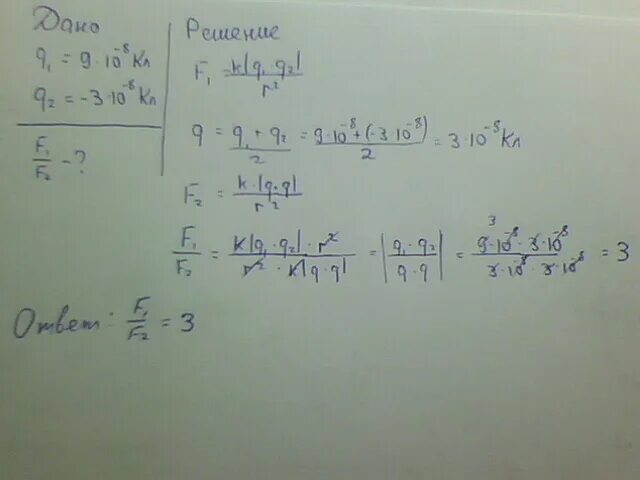 Дано
q₁ = 9·10⁻⁸ Кл
q₂ = -3·10⁻⁸ Кл
F₁/F₂ - ?
Решение
F₁ = k|q₁ q₂| / r²
q = (q₁ + q₂)/2 = (9·10⁻⁸ + (-3·10⁻⁸))/2 = 3·10⁻⁸ Кл
F₂ = k·|q·q| / r²
F₁/F₂ = (k|q₁·q₂|·r²)/(r²·k|q·q|) = |(q₁·q₂)/(q·q)| = (9·10⁻⁸·3·10⁻⁸)/(3·10⁻⁸·3·10⁻⁸) = 3
Ответ: F₁/F₂ = 3